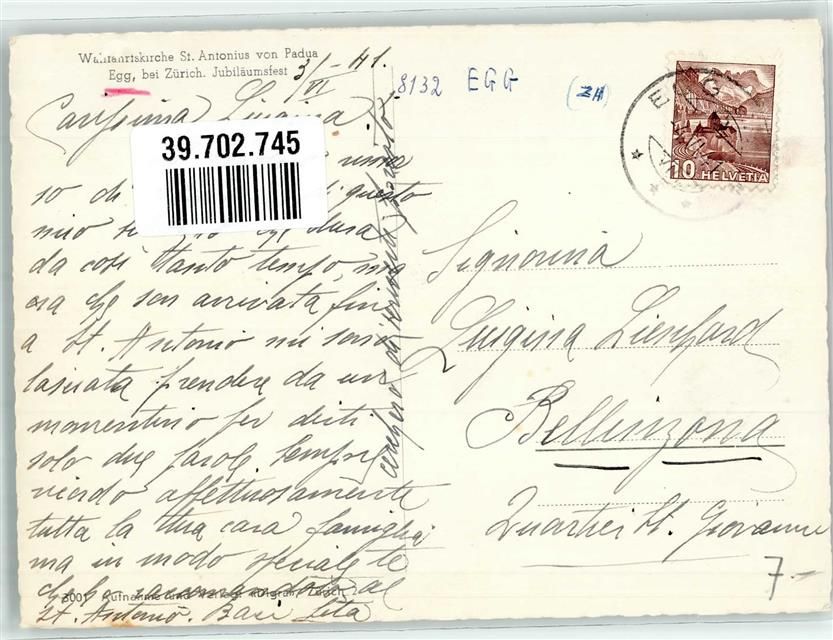 Wallfahrtskirche St. Antonius von Padua
Egg, bei Zürich. Jubiläumsfest
3/VI - 41.
8132 EGG (ZH)
EGG
10 HELVETIA
39.702.745
Carissima Luigina!
so di questo
mio
da così tanto tempo, ma
ora che son arrivata fin
a St. Antonio mi sono
lasciata prendere da un
momentino per dirti
solo due parole. Sempre
ricordo affettuosamente
tutta la tua cara famiglia
ma in modo speciale te
che ho raccomandato al
St. Antonio. Baci Leta
Signorina
Luigina Lienhard
Bellinzona
Quartier St. Giovanni
7.-
3001 Aufnahme und Verlag Zürich